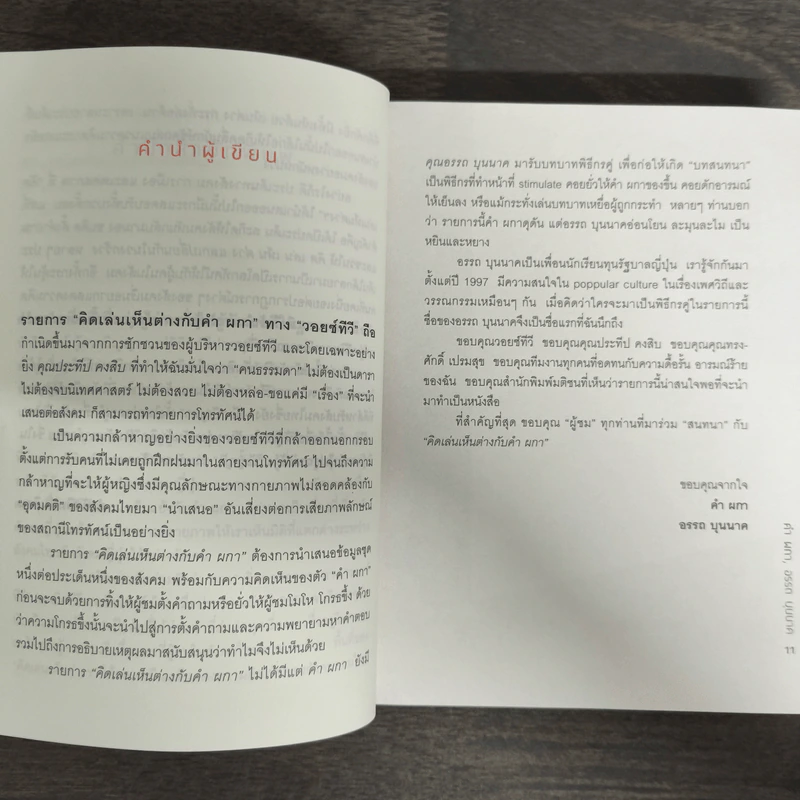 คำนำผู้เขียน
รายการ “คิดเล่นเห็นต่างกับคำ ผกา” ทาง “วอยซ์ทีวี” ถือ
กำเนิดขึ้นมาจากการชักชวนของผู้บริหารวอยซ์ทีวี และโดยเฉพาะอย่าง
ยิ่ง คุณประทีป คงสิบ ที่ทำให้ฉันมั่นใจว่า “คนธรรมดา” ไม่ต้องเป็นดารา
ไม่ต้องจบนิเทศศาสตร์ ไม่ต้องสวย ไม่ต้องหล่อ-ขอแค่มี “เรื่อง” ที่จะนำ
เสนอต่อสังคม ก็สามารถทำรายการโทรทัศน์ได้
เป็นความกล้าหาญอย่างยิ่งของวอยซ์ทีวีที่กล้าออกนอกกรอบ
ตั้งแต่การรับคนที่ไม่เคยถูกฝึกฝนมาในสายงานโทรทัศน์ ไปจนถึงความ
กล้าหาญที่จะให้ผู้หญิงซึ่งมีคุณลักษณะทางกายภาพไม่สอดคล้องกับ
“อุดมคติ” ของสังคมไทยมา “นำเสนอ” อันเสี่ยงต่อการเสียภาพลักษณ์
ของสถานีโทรทัศน์เป็นอย่างยิ่ง
รายการ “คิดเล่นเห็นต่างกับคำ ผกา” ต้องการนำเสนอข้อมูลชุด
หนึ่งต่อประเด็นหนึ่งของสังคม พร้อมกับความคิดเห็นของตัว “คำ ผกา”
ก่อนจะจบด้วยการทิ้งให้ผู้ชมตั้งคำถามหรือยั่วให้ผู้ชมโมโห โกรธขึ้ง ด้วย
ว่าความโกรธขึ้งนั้นจะนำไปสู่การตั้งคำถามและความพยายามหาคำตอบ
รวมไปถึงการอธิบายเหตุผลมาสนับสนุนว่าทำไมจึงไม่เห็นด้วย
รายการ “คิดเล่นเห็นต่างกับคำ ผกา” ไม่ได้มีแต่ คำ ผกา ยังมี
คุณอรรถ บุนนาค มารับบทบาทพิธีกรคู่ เพื่อก่อให้เกิด “บทสนทนา”
เป็นพิธีกรที่ทำหน้าที่ stimulate คอยยั่วให้คำ ผกาของขึ้น คอยดักอารมณ์
ให้เย็นลง หรือแม้กระทั่งเล่นบทบาทเหยื่อผู้ถูกกระทำ หลายๆ ท่านบอก
ว่า รายการนี้คำ ผกาดุดัน แต่อรรถ บุนนาคอ่อนโยน ละมุนละไม เป็น
หยินและหยาง
อรรถ บุนนาคเป็นเพื่อนนักเรียนทุนรัฐบาลญี่ปุ่น เรารู้จักกันมา
ตั้งแต่ปี 1997 มีความสนใจใน poppular culture ในเรื่องเพศวิถีและ
วรรณกรรมเหมือนๆ กัน เมื่อคิดว่าใครจะมาเป็นพิธีกรคู่ในรายการนี้
ชื่อของอรรถ บุนนาคจึงเป็นชื่อแรกที่ฉันนึกถึง
ขอบคุณวอยซ์ทีวี ขอบคุณคุณประทีป คงสิบ ขอบคุณคุณทรง-
ศักดิ์ เปรมสุข ขอบคุณทีมงานทุกคนที่อดทนกับความดื้อรั้น อารมณ์ร้าย
ของฉัน ขอบคุณสำนักพิมพ์มติชนที่เห็นว่ารายการนี้น่าสนใจพอที่จะนำ
มาทำเป็นหนังสือ
ที่สำคัญที่สุด ขอบคุณ “ผู้ชม” ทุกท่านที่มาร่วม “สนทนา” กับ
“คิดเล่นเห็นต่างกับคำ ผกา”
ขอบคุณจากใจ
คำ ผกา
อรรถ บุนนาค
คำ ผกา, อรรถ บุนนาค
11